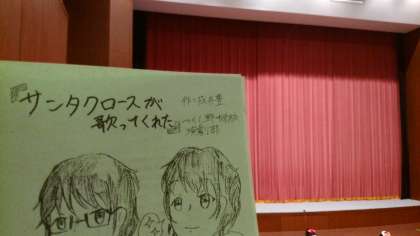 『サンタクロースが
歌ってくれた』
作：成井豊
演劇部